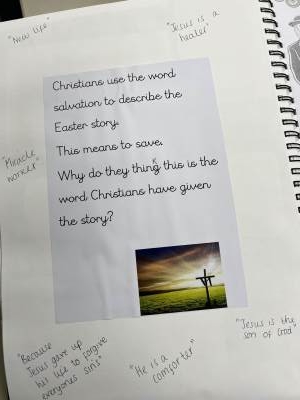 "New life"
"Jesus is a
healer"
Christians use the word
salvation to describe the
Easter story.
This means to save.
Why do they thing k this is the
word Christians have given
the story?
"Miracle
worker"
"Because
Jesus gave up
his life to forgive
everyones sins"
"He is a
comforter"
"Jesus is the
son of God"